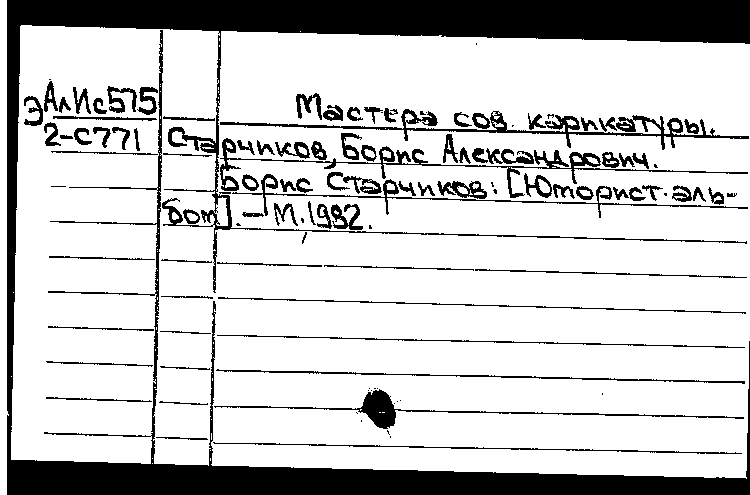 Мастера сов. карикатуры.
ЭАлИс575
2-С771 Старчиков, Борис Александрович.
Борис Старчиков: [Юморист. аль-
бом]. — М. 1982.